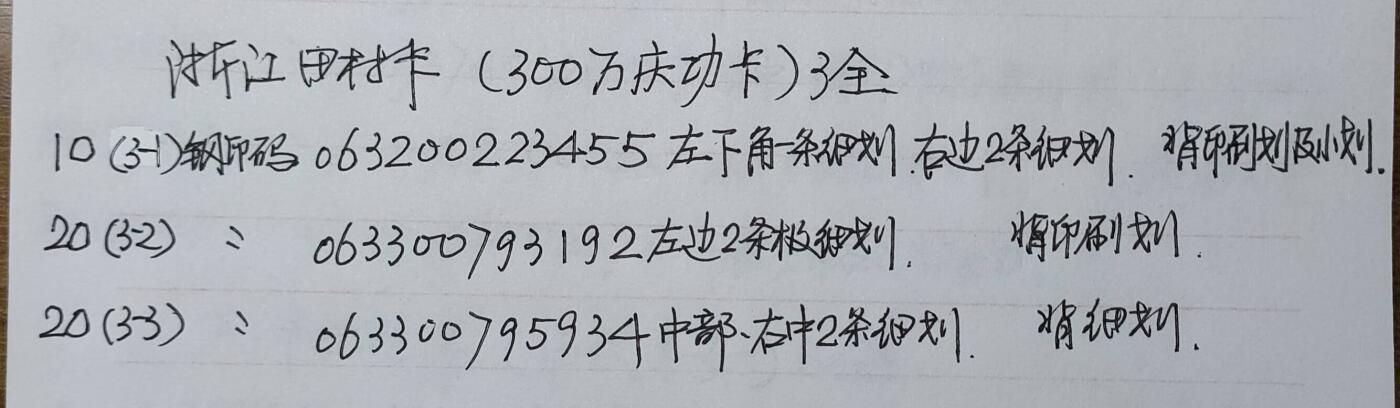 浙江田村卡（300万庆功卡）3全
10（3-1）钢印码 063200223455 左下角一条细划.右边2条细划. 背印刷划及小划.
20（3-2） 〃 063300793192 左边2条极细划. 背印刷划.
20（3-3） 〃 063300795934 中部、右中2条细划. 背细划.